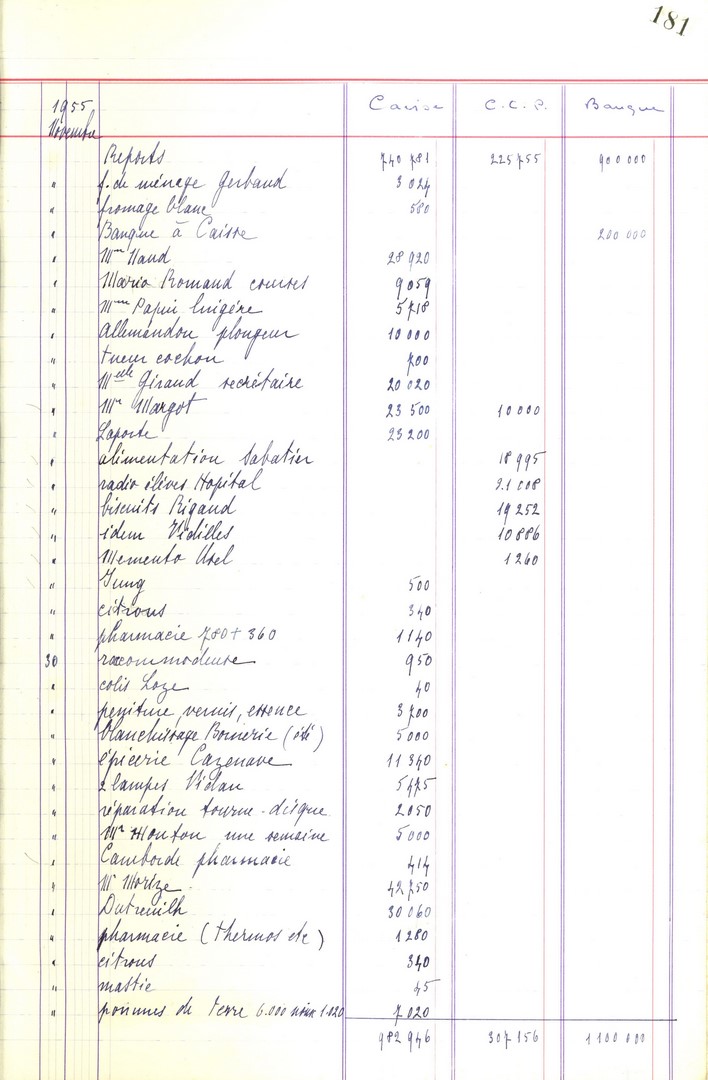 181
1955 Caisse C.C.P. Banque
Novembre
Reports 740 781 225 755 900 000
" f. de ménage Gerbaud 3 024
" fromage blanc 580
" Banque à Caisse 200 000
" Mme Naud 28 920
" Mario Romand courses 9 059
" Mme Papin lingère 5 718
" Allemandon plongeur 10 000
" tueur cochon 700
" Melle Giraud secrétaire 20 020
" Mr Margot 23 500 10 000
" Laporte 23 200
" alimentation Sabatier 18 995
" radio élèves Hopital 21 008
" biscuits Rigaud 19 252
" idem Vidilles 10 886
" Memento Usel 1 260
" Jung 500
" citrons 340
" pharmacie 780 + 360 1 140
30 raccommodeuse 950
" colis Loze 40
" peniture, vernis, essence 3 700
" blanchissage Boinerie (été) 5 000
" épicerie Cazenave 11 340
" 2 lampes Vidau 5 475
" réparation tourne-disque 2 050
" Mr Mouton une semaine 5 000
" Camborde pharmacie 414
" Mr Morize 42 750
" Dutreuilh 30 060
" pharmacie (thermos etc) 1 280
" citrons 340
" mastic 45
" pommes de terre 6.000 noix 1.020 7 020
982 946 307 156 1 100 000